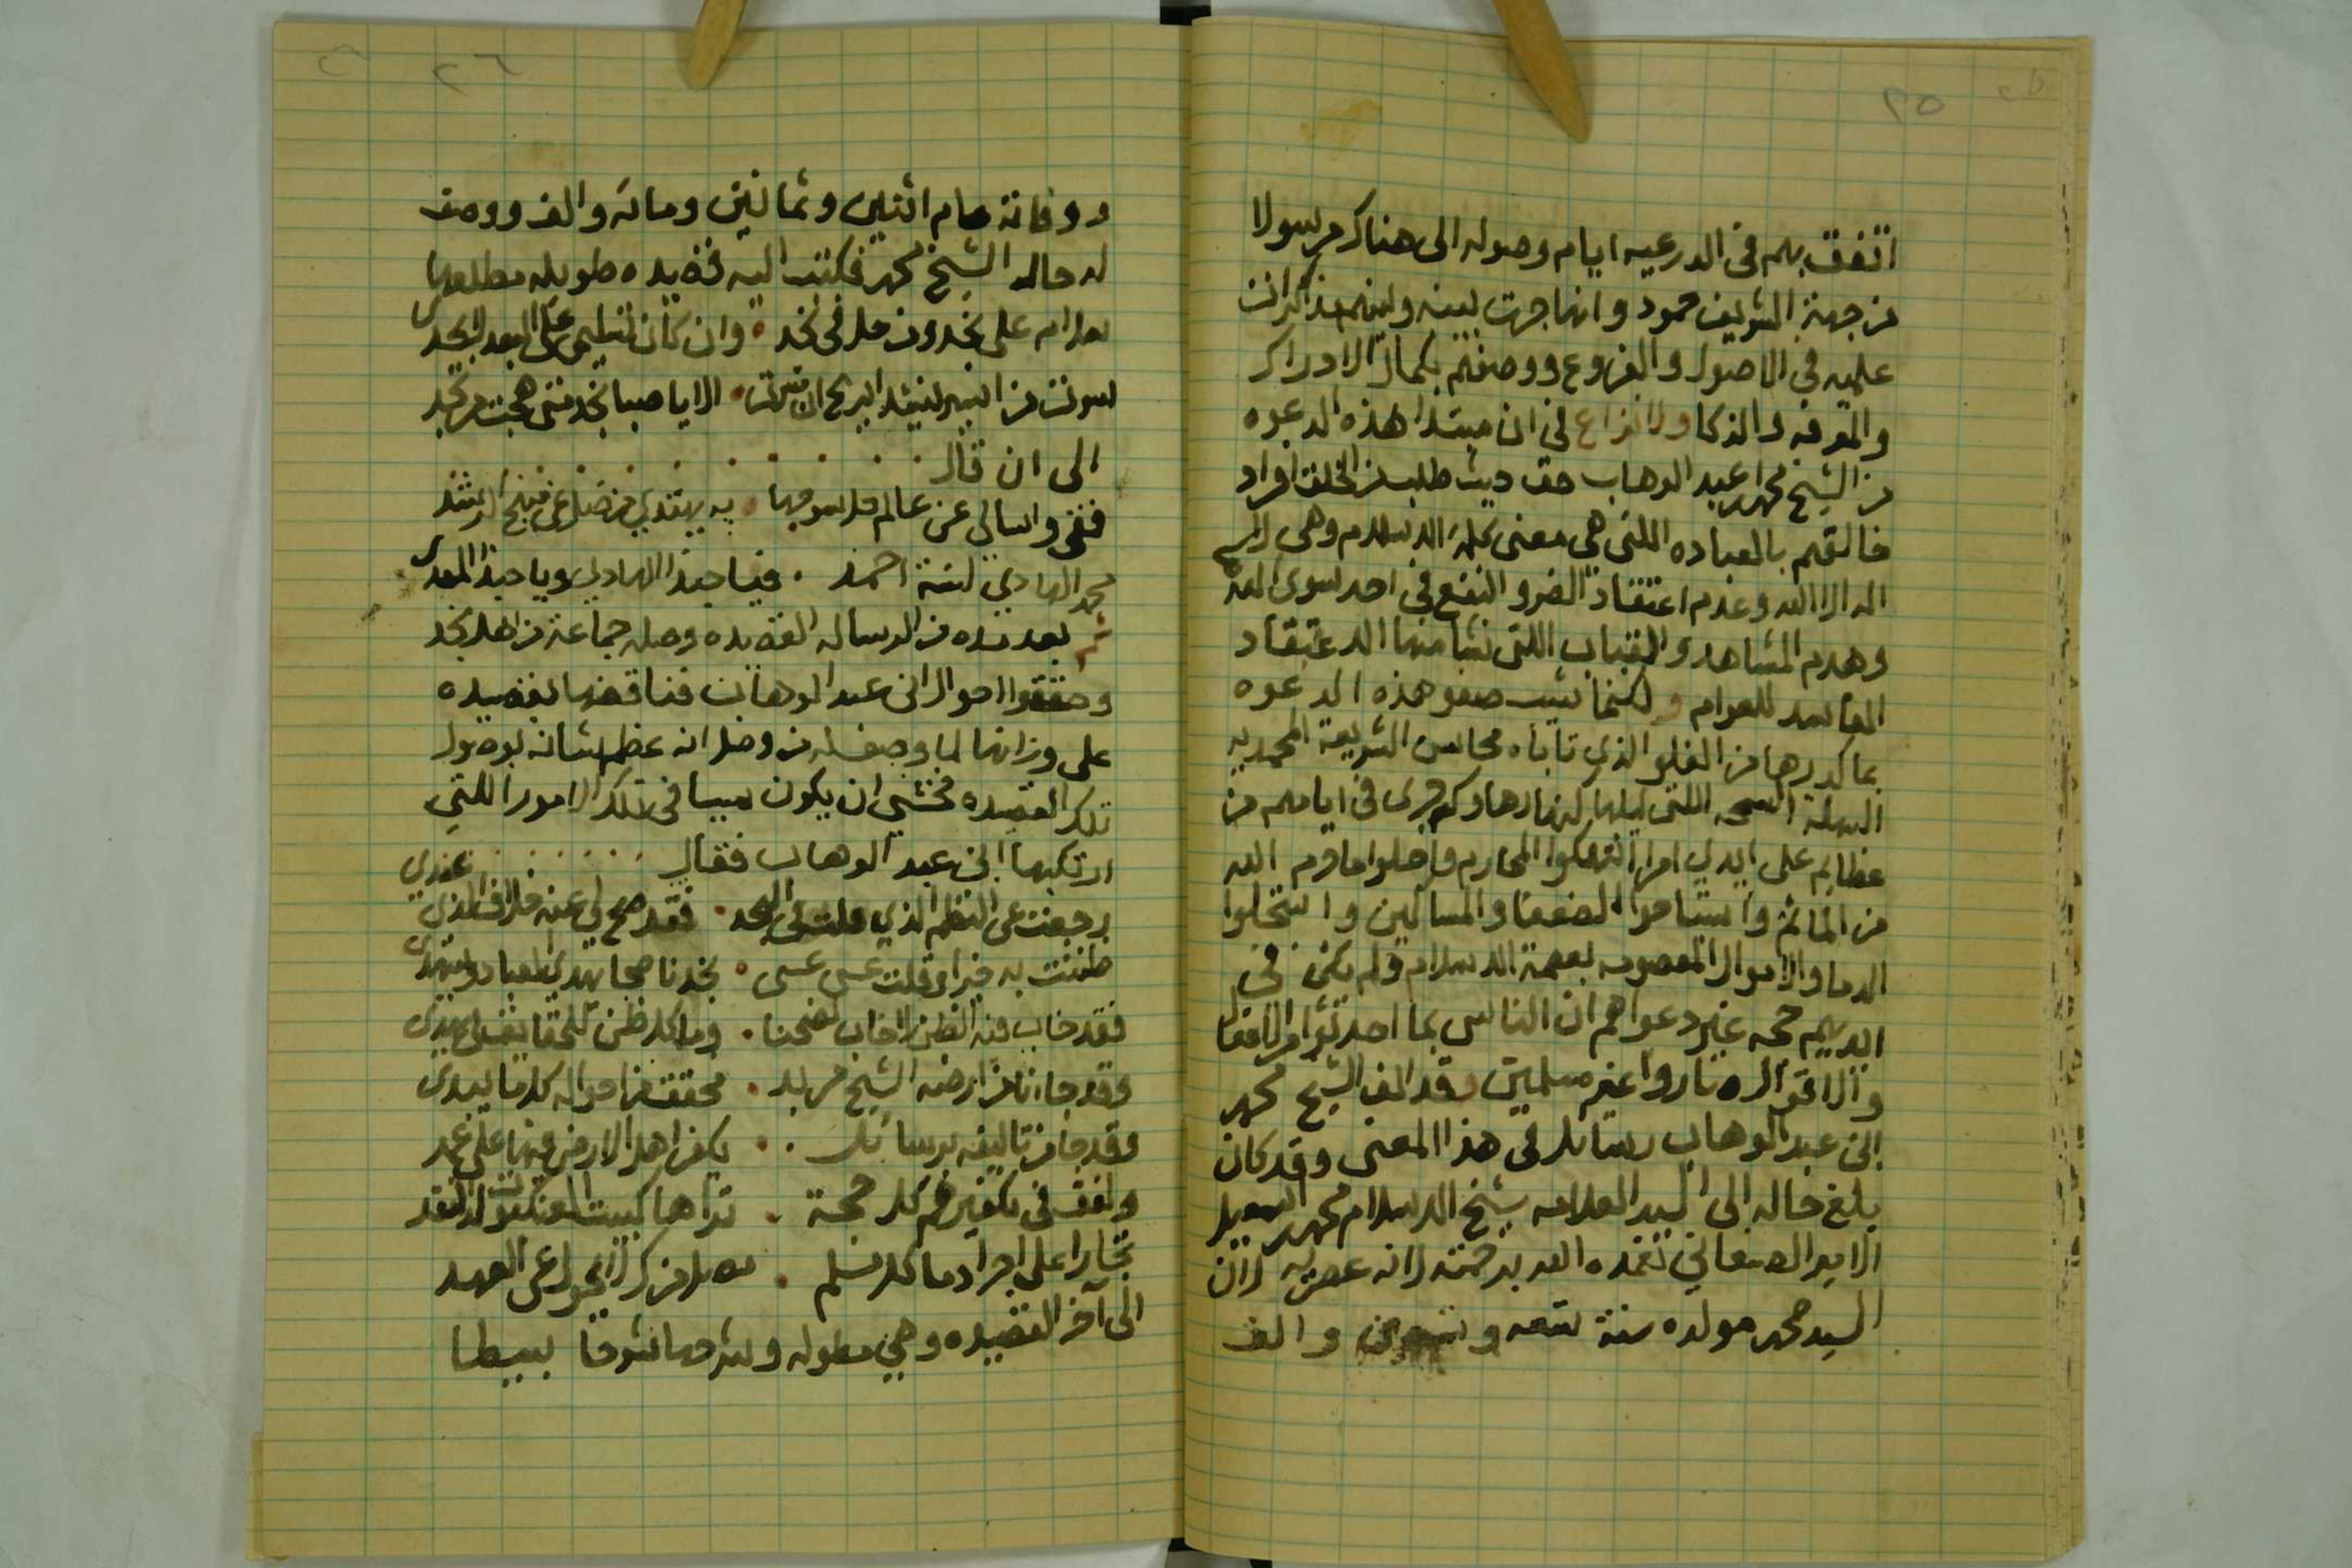 ٢٥
اتفق بهم فى الدرعيه ايام وصوله الى هناك مرسولا
من جهة الشريف حمود وانها جرت بينه وبينهم مذاكرات
علميه في الاصول والفروع ووصفهم بكمال الادراك
والمعرفه والذكا ولا نزاع في ان مبتدا هذه الدعوه
من الشيخ محمد عبد الوهاب حق حيث طلب من الخلق افراد
خالقهم بالعباده اللتي هي معنى كلمة الاسلام وهي لا
اله الا الله وعدم اعتقاد الضر والنفع في احد سوى الله
وهدم المشاهد والقباب اللتي نشا منها الاعتقاد
الفاسد للعوام ولكنما شيب صفو هذه الدعوه
بما كدرها من الغلو الذي تاباه محاسن الشريعة المحمديه
السهلة السمحه اللتي ليلها كنهارها وكم جرى في ايامهم من
عظايم على ايدي امرا انتهكوا المحارم واحلوا ما حرم الله
من المآثم واستباحوا الضعفا والمساكين واستحلوا
الدما والاموال المعصومه بعصمة الاسلام ولم يكن في
ايديهم حجه غير دعواهم ان الناس بما احدثوا من الافعال
والاقوال صاروا غير مسلمين وقد الف الشيخ محمد
ابن عبد الوهاب رسائل في هذا المعنى وقد كان
بلغ حاله الى السيد العلامه شيخ الاسلام محمد اسمعيل
الامير الصنعاني تغمده الله برحمته لانه عصريه لان
السيد محمد مولده سنة تسعه وتسعين والف
٢٦
ووفاته عام اثنين وثمانين ومائه والف ووصف
له حال الشيخ محمد فكتب اليه قصيده طويله مطلعها
سلام على نجد ومن حل في نجد • وان كان تسليمي على البعد لا يجدى
سرت من اسير ينشد الريح ان سرت • الا يا صبا نجد متى هجت من نجد
الى ان قال
قفي واسالي عن عالم حل سوحها • به يهتدي من ضل عن منهج الرشد
محمد الهادي لسنة احمد • فيا حبذا الهادي ويا حبذا المهدى
ثم بعد مده من ارساله القصيده وصله جماعة من اهل نجد
وحققوا احوال ابن عبد الوهاب فناقضها بقصيده
على وزانها لما وصف له من وصل انه عظم شانه بوصول
تلك القصيده فخشي ان يكون سببا في تلك الامور اللتي
ارتكبها ابن عبد الوهاب فقال
رجعت عن النظم الذي قلت في النجد • فقد صح لي عنه خلاف الذي عندي
ظننت به خيرا وقلت عسى عسى • نجد ناصحا يهدي العباد ويستهدى
فقد خاب فيه الظن لا خاب نصحنا • وما كل ظن للحقايق لي يهدى
وقد جاءنا من ارضه الشيخ مربد • محقق من احواله كل ما يبدى
وقد جا من تاليفه برسائل • يكفر اهل الارض فيها على عمد
ولفق في تكفيرهم كل حجة • تراها كبيت العنكبوت لدى النقد
تجارا على اجرا دما كل مسلم • مصل مزك لا يحول عن العهد
الى آخر القصيده وهي مطوله وشرحها شرحا بسيطا